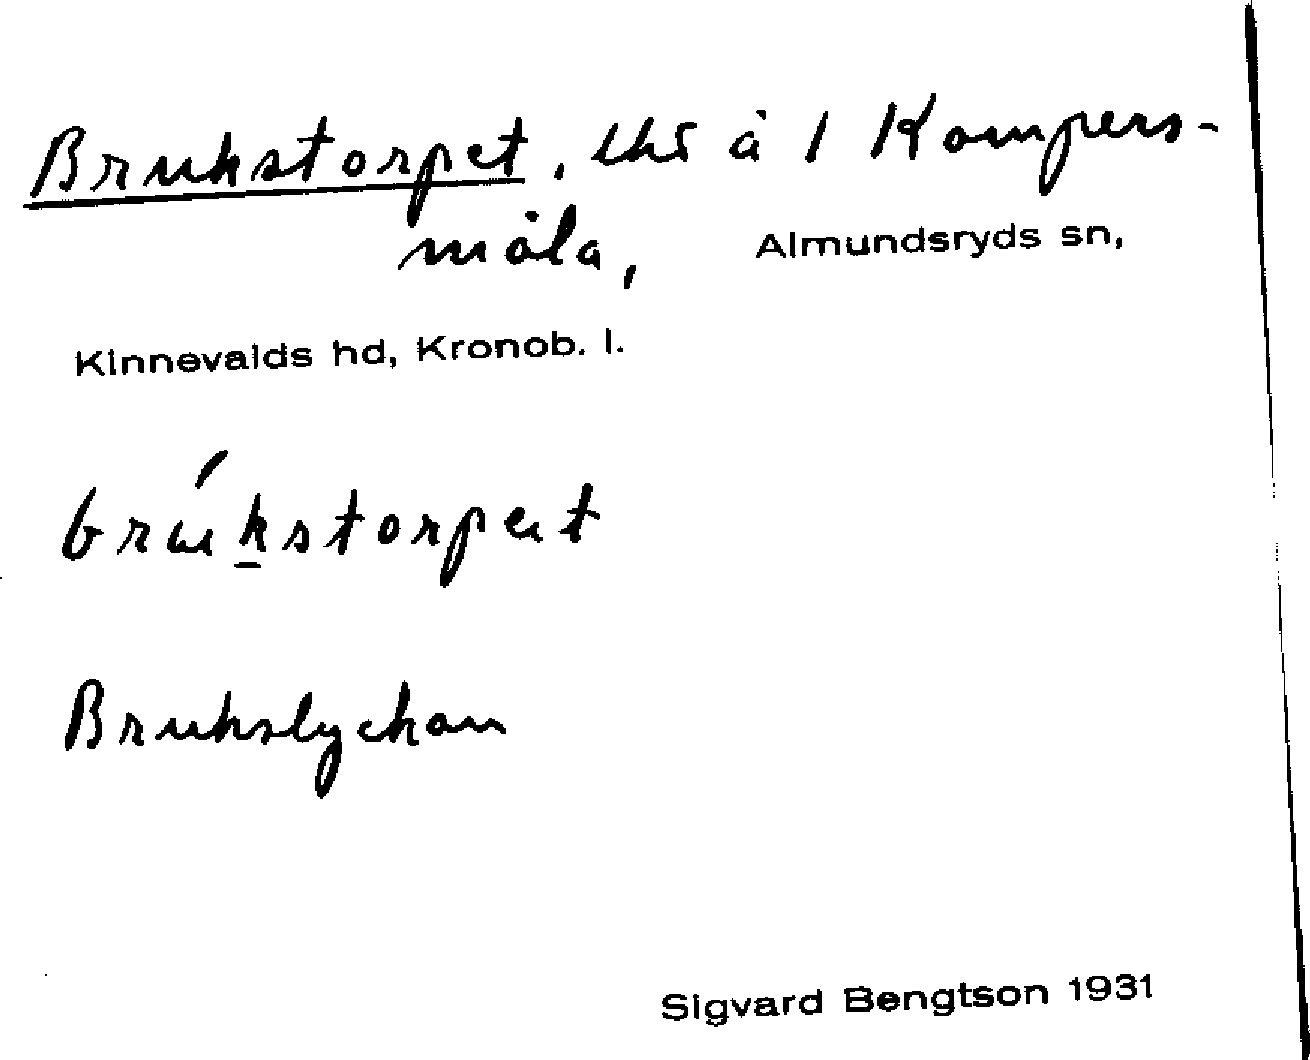 Brukstorpet, lhs å 1 Kompers-
måla, Almundsryds sn,
Kinnevalds hd, Kronob. l.
brúkstorpet
Brukslyckan
Sigvard Bengtson 1931